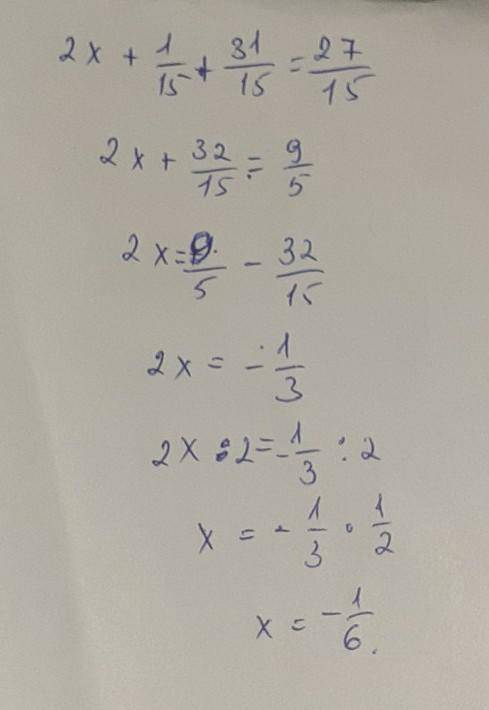 2x + 1/15 + 31/15 = 27/15
2x + 32/15 = 9/5
2x = 9/5 - 32/15
2x = -1/3
2x : 2 = -1/3 : 2
x = -1/3 · 1/2
x = -1/6.